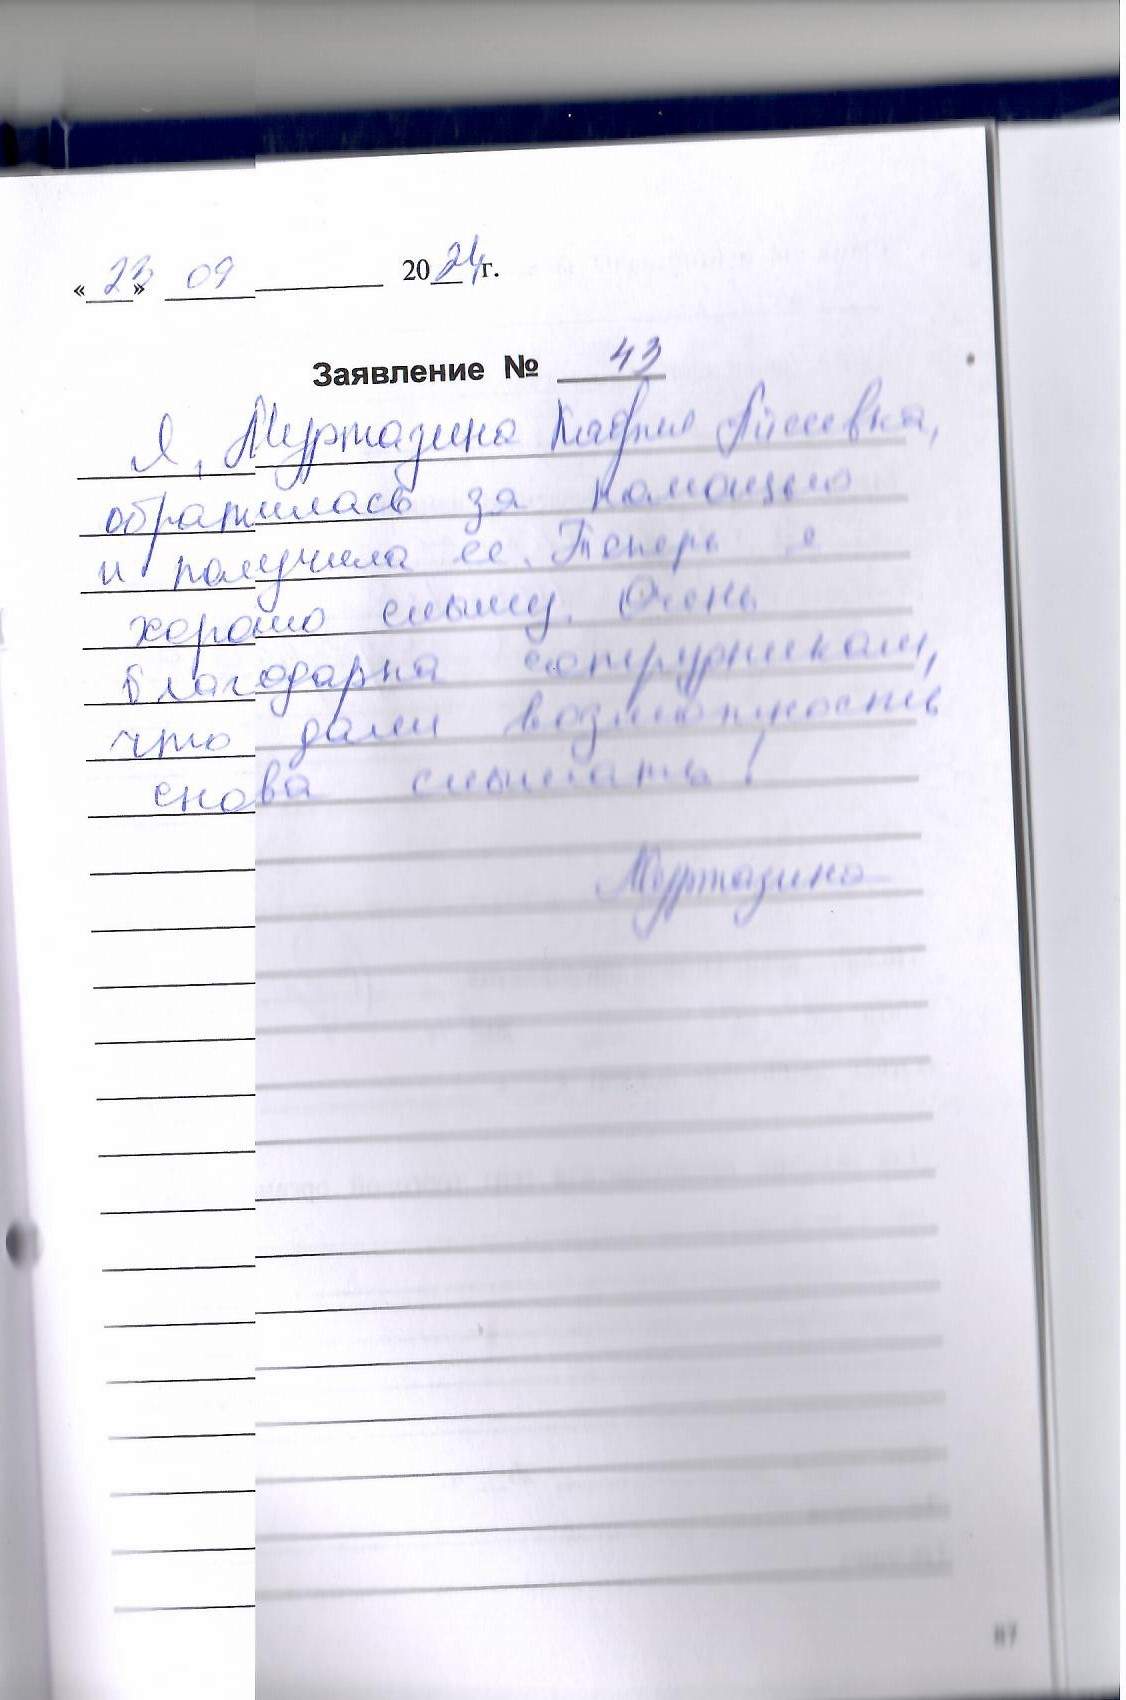 «23» 09 2024 г.
Заявление № 43
Я, Муртазина
обратилась за помощью
и получила ее. Теперь я
хорошо слышу. Очень
благодарна сотрудникам,
что дали возможность
снова слышать!
Муртазина
87